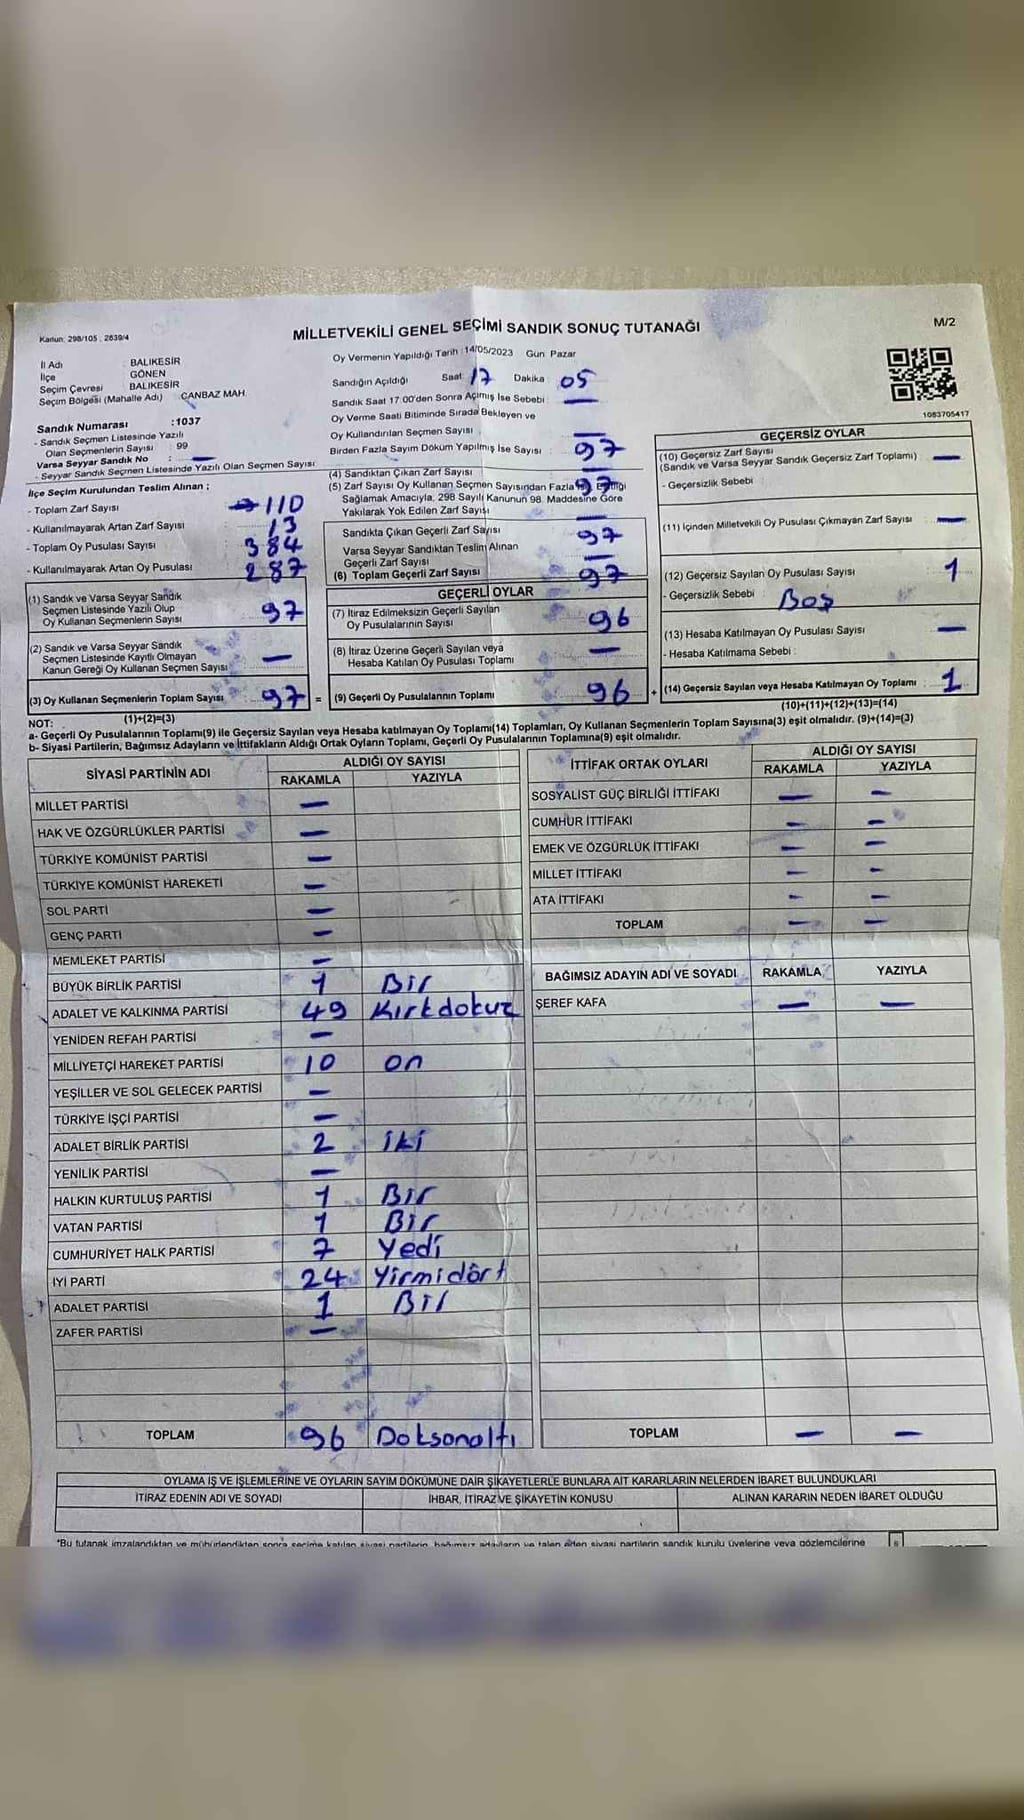 MİLLETVEKİLİ GENEL SEÇİMİ SANDIK SONUÇ TUTANAĞI
M/2
Kanun: 298/105 ; 2839/4
İl Adı : BALIKESİR
İlçe : GÖNEN
Seçim Çevresi : BALIKESİR
Seçim Bölgesi (Mahalle Adı) : CANBAZ MAH.
Sandık Numarası :1037
- Sandık Seçmen Listesinde Yazılı
Olan Seçmenlerin Sayısı : 99
Varsa Seyyar Sandık No : —
- Seyyar Sandık Seçmen Listesinde Yazılı Olan Seçmen Sayısı
İlçe Seçim Kurulundan Teslim Alınan ;
- Toplam Zarf Sayısı : 110
- Kullanılmayarak Artan Zarf Sayısı : 13
- Toplam Oy Pusulası Sayısı : 384
- Kullanılmayarak Artan Oy Pusulası : 287
(1) Sandık ve Varsa Seyyar Sandık
Seçmen Listesinde Yazılı Olup
Oy Kullanan Seçmenlerin Sayısı : 97
(2) Sandık ve Varsa Seyyar Sandık
Seçmen Listesinde Kayıtlı Olmayan
Kanun Gereği Oy Kullanan Seçmen Sayısı : —
(3) Oy Kullanan Seçmenlerin Toplam Sayısı : 97 =
(1)+(2)=(3)
Oy Vermenin Yapıldığı Tarih :14/05/2023 Gün Pazar
Sandığın Açıldığı Saat: 17 Dakika : 05
Sandık Saat 17:00'den Sonra Açımış İse Sebebi : —
Oy Verme Saati Bitiminde Sırada Bekleyen ve
Oy Kullandırılan Seçmen Sayısı : —
Birden Fazla Sayım Döküm Yapılmış İse Sayısı : 97
(4) Sandıktan Çıkan Zarf Sayısı —
(5) Zarf Sayısı Oy Kullanan Seçmen Sayısından Fazla 97
Sağlamak Amacıyla, 298 Sayılı Kanunun 98. Maddesine Göre
Yakılarak Yok Edilen Zarf Sayısı : —
Sandıkta Çıkan Geçerli Zarf Sayısı : 97
Varsa Seyyar Sandıktan Teslim Alınan
Geçerli Zarf Sayısı : —
(6) Toplam Geçerli Zarf Sayısı : 97
GEÇERLİ OYLAR
(7) İtiraz Edilmeksizin Geçerli Sayılan
Oy Pusulalarının Sayısı : 96
(8) İtiraz Üzerine Geçerli Sayılan veya
Hesaba Katılan Oy Pusulası Toplamı : —
(9) Geçerli Oy Pusulalarının Toplamı : 96 +
1083705417
GEÇERSİZ OYLAR
(10) Geçersiz Zarf Sayısı
(Sandık ve Varsa Seyyar Sandık Geçersiz Zarf Toplamı) : —
- Geçersizlik Sebebi :
(11) İçinden Milletvekili Oy Pusulası Çıkmayan Zarf Sayısı : —
(12) Geçersiz Sayılan Oy Pusulası Sayısı : 1
- Geçersizlik Sebebi : Boş
(13) Hesaba Katılmayan Oy Pusulası Sayısı : —
- Hesaba Katılmama Sebebi :
(14) Geçersiz Sayılan veya Hesaba Katılmayan Oy Toplamı : 1
(10)+(11)+(12)+(13)=(14)
NOT:
a- Geçerli Oy Pusulalarının Toplamı(9) ile Geçersiz Sayılan veya Hesaba katılmayan Oy Toplamı(14) Toplamları, Oy Kullanan Seçmenlerin Toplam Sayısına(3) eşit olmalıdır. (9)+(14)=(3)
b- Siyasi Partilerin, Bağımsız Adayların ve İttifakların Aldığı Ortak Oyların Toplamı, Geçerli Oy Pusulalarının Toplamına(9) eşit olmalıdır.
SİYASİ PARTİNİN ADI ALDIĞI OY SAYISI
RAKAMLA YAZIYLA
MİLLET PARTİSİ —
HAK VE ÖZGÜRLÜKLER PARTİSİ —
TÜRKİYE KOMÜNİST PARTİSİ —
TÜRKİYE KOMÜNİST HAREKETİ —
SOL PARTİ —
GENÇ PARTİ —
MEMLEKET PARTİSİ —
BÜYÜK BİRLİK PARTİSİ 1 Bir
ADALET VE KALKINMA PARTİSİ 49 Kırkdokuz
YENİDEN REFAH PARTİSİ —
MİLLİYETÇİ HAREKET PARTİSİ 10 on
YEŞİLLER VE SOL GELECEK PARTİSİ —
TÜRKİYE İŞÇİ PARTİSİ —
ADALET BİRLİK PARTİSİ 2 iki
YENİLİK PARTİSİ —
HALKIN KURTULUŞ PARTİSİ 1 Bir
VATAN PARTİSİ 1 Bir
CUMHURİYET HALK PARTİSİ 7 Yedi
İYİ PARTİ 24 Yirmidört
ADALET PARTİSİ 1 Bir
ZAFER PARTİSİ —
TOPLAM 96 Doksanaltı
İTTİFAK ORTAK OYLARI ALDIĞI OY SAYISI
RAKAMLA YAZIYLA
SOSYALİST GÜÇ BİRLİĞİ İTTİFAKI — —
CUMHUR İTTİFAKI — —
EMEK VE ÖZGÜRLÜK İTTİFAKI — —
MİLLET İTTİFAKI — —
ATA İTTİFAKI — —
TOPLAM — —
BAĞIMSIZ ADAYIN ADI VE SOYADI RAKAMLA YAZIYLA
ŞEREF KAFA — —
TOPLAM — —
OYLAMA İŞ VE İŞLEMLERİNE VE OYLARIN SAYIM DÖKÜMÜNE DAİR ŞİKAYETLERLE BUNLARA AİT KARARLARIN NELERDEN İBARET BULUNDUKLARI
İTİRAZ EDENİN ADI VE SOYADI İHBAR, İTİRAZ VE ŞİKAYETİN KONUSU ALINAN KARARIN NEDEN İBARET OLDUĞU
*Bu tutanak imzalandıktan ve mühürlendikten sonra seçime katılan siyasi partilerin, bağımsız adayların ve talep eden siyasi partilerin sandık kurulu üyelerine veya gözlemcilerine